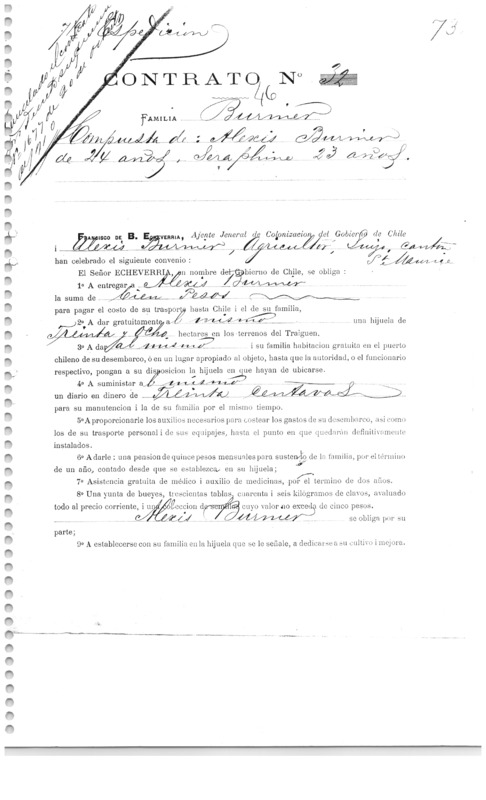 7ª Espedicion
73.
Cancelado el contrato
Nº 1677 de 20 de
de 1910
CONTRATO Nº 32
46
FAMILIA Burnier
Compuesta de: Alexis Burnier
de 24 años, Seraphine 23 años.
FRANCISCO DE B. ECHEVERRIA, Ajente Jeneral de Colonizacion del Gobierno de Chile
i Alexis Burnier, Agricultor, Suizo, canton
St Maurice
han celebrado el siguiente convenio:
El Señor ECHEVERRIA, en nombre del Gobierno de Chile, se obliga:
1º A entregar a Alexis Burnier
la suma de Cien Pesos
para pagar el costo de su trasporte hasta Chile i el de su familia,
2º A dar gratuitamente al mismo una hijuela de
Treinta y Ocho hectares en los terrenos del Traiguen.
3º A dar al mismo i su familia habitacion gratuita en el puerto
chileno de su desembarco, ó en un lugar apropiado al objeto, hasta que la autoridad, o el funcionario
respectivo, pongan a su disposicion la hijuela en que hayan de ubicarse.
4º A suministar al mismo
un diario en dinero de Treinta Centavos
para su manutencion i la de su familia por el mismo tiempo.
5º A proporcionarle los auxilios necesarios para costear los gastos de su desembarco, asi como
los de su trasporte personal i de sus equipajes, hasta el punto en que quedarán definitivamente
instalados.
6º A darle: una pension de quince pesos mensuales para sustento de la familia, por el término
de un año, contado desde que se establezca en su hijuela;
7º Asistencia gratuita de médico i auxilio de medicinas, por el termino de dos años.
8º Una yunta de bueyes, trescientas tablas, cuarenta i seis kilógramos de clavos, avaluado
todo al precio corriente, i una coleccion de semillas cuyo valor no exceda de cinco pesos.
Alexis Burnier se obliga por su
parte;
9º A establecerse con su familia en la hijuela que se le señale, a dedicarse a su cultivo i mejora.